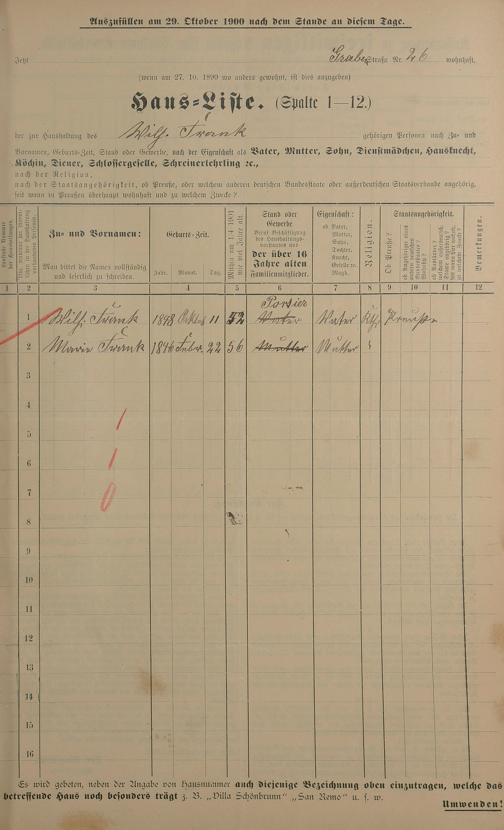 Auszufüllen am 29. Oktober 1900 nach dem Stande an diesem Tage.
Jetzt Graben Straße Nr. 26 wohnhaft,
(wenn am 27. 10. 1899 wo anders gewohnt, ist dies anzugeben)
Haus-Liste. (Spalte 1—12.)
der zur Haushaltung des Wilh. Frank gehörigen Personen nach Zu- und
Vornamen, Geburts-Zeit, Stand oder Gewerbe, nach der Eigenschaft als Vater, Mutter, Sohn, Dienstmädchen, Hausknecht,
Köchin, Diener, Schlossergeselle, Schreinerlehrling ec.,
nach der Religion,
nach der Staatsangehörigkeit, ob Preuße, oder welchem anderen deutschen Bundesstaate oder außerdeutschen Staatsverbande angehörig,
seit wann in Preußen überhaupt wohnhaft und zu welchem Zwecke?
Zu- und Vornamen:
Man bittet die Namen vollständig
und leserlich zu schreiben.
Geburts-Zeit.
Jahr. Monat. Tag.
Stand oder
Gewerbe
der über 16
Jahre alten
Familienmitglieder.
Eigenschaft:
ob Vater,
Mutter,
Sohn,
Tochter,
Knecht,
Geselle,
Magd.
Religion.
Staatsangehörigkeit.
Ob Preuße?
Bemerkungen.
1 2 3 4 5 6 7 8 9 10 11 12
Portier
1 Wilh. Frank 1848 Oktob 11 52 Vater Vater Kth. Preuße
2 Marie Frank 1844 Febr. 22 56 Mutter Mutter "
3
4
5
6
7
8
9
10
11
12
13
14
15
16
Es wird gebeten, neben der Angabe von Hausnummer auch diejenige Bezeichnung oben einzutragen, welche das
betreffende Haus noch besonders trägt z. B. „Villa Schönbrunn" „San Remo" u. s. w.
Umwenden!